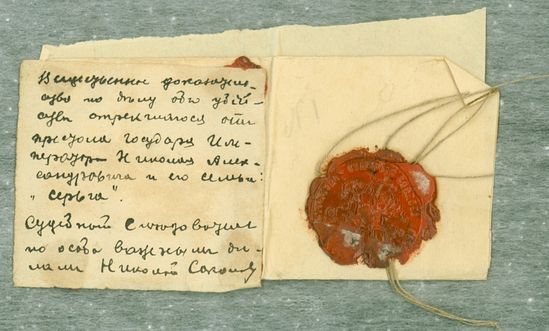 Вещественные доказатель-
ства по делу объ убій-
ствѣ отрекшагося отъ
престола Государя Им-
ператора Николая Алек-
сандровича и его семьи:
"серьга".
Судебный Следователь
по особо важнымъ дѣ-
ламъ Николай Соколовъ